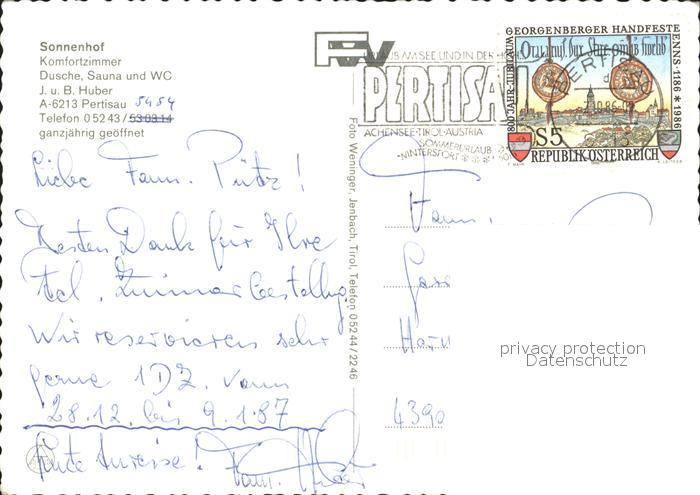 Sonnenhof
Komfortzimmer
Dusche, Sauna und WC
J. u. B. Huber
A-6213 Pertisau 5454
Telefon 0 52 43 / 53 03 14
ganzjährig geöffnet
Liebe Fam. Pütz!
Besten Dank für Ihre
Tel. Zimmerbestellg.
Wir reservieren sehr
gerne 1 DZ. vom
28.12. bis 9.1.87
Gute Anreise! Fam. Huber
Foto Weninger, Jenbach, Tirol, Telefon 0 52 44 / 2246
URLAUB AM SEE UND IN DER
PERTISAU
ACHENSEE·TIROL·AUSTRIA
SOMMERURLAUB
WINTERSPORT
PERTISAU
10.86
800 JAHR-JUBILÄUM GEORGENBERGER HANDFESTE ENNS·1186 * 1986
S5
REPUBLIK ÖSTERREICH
Fam.
4390
privacy protection
Datenschutz